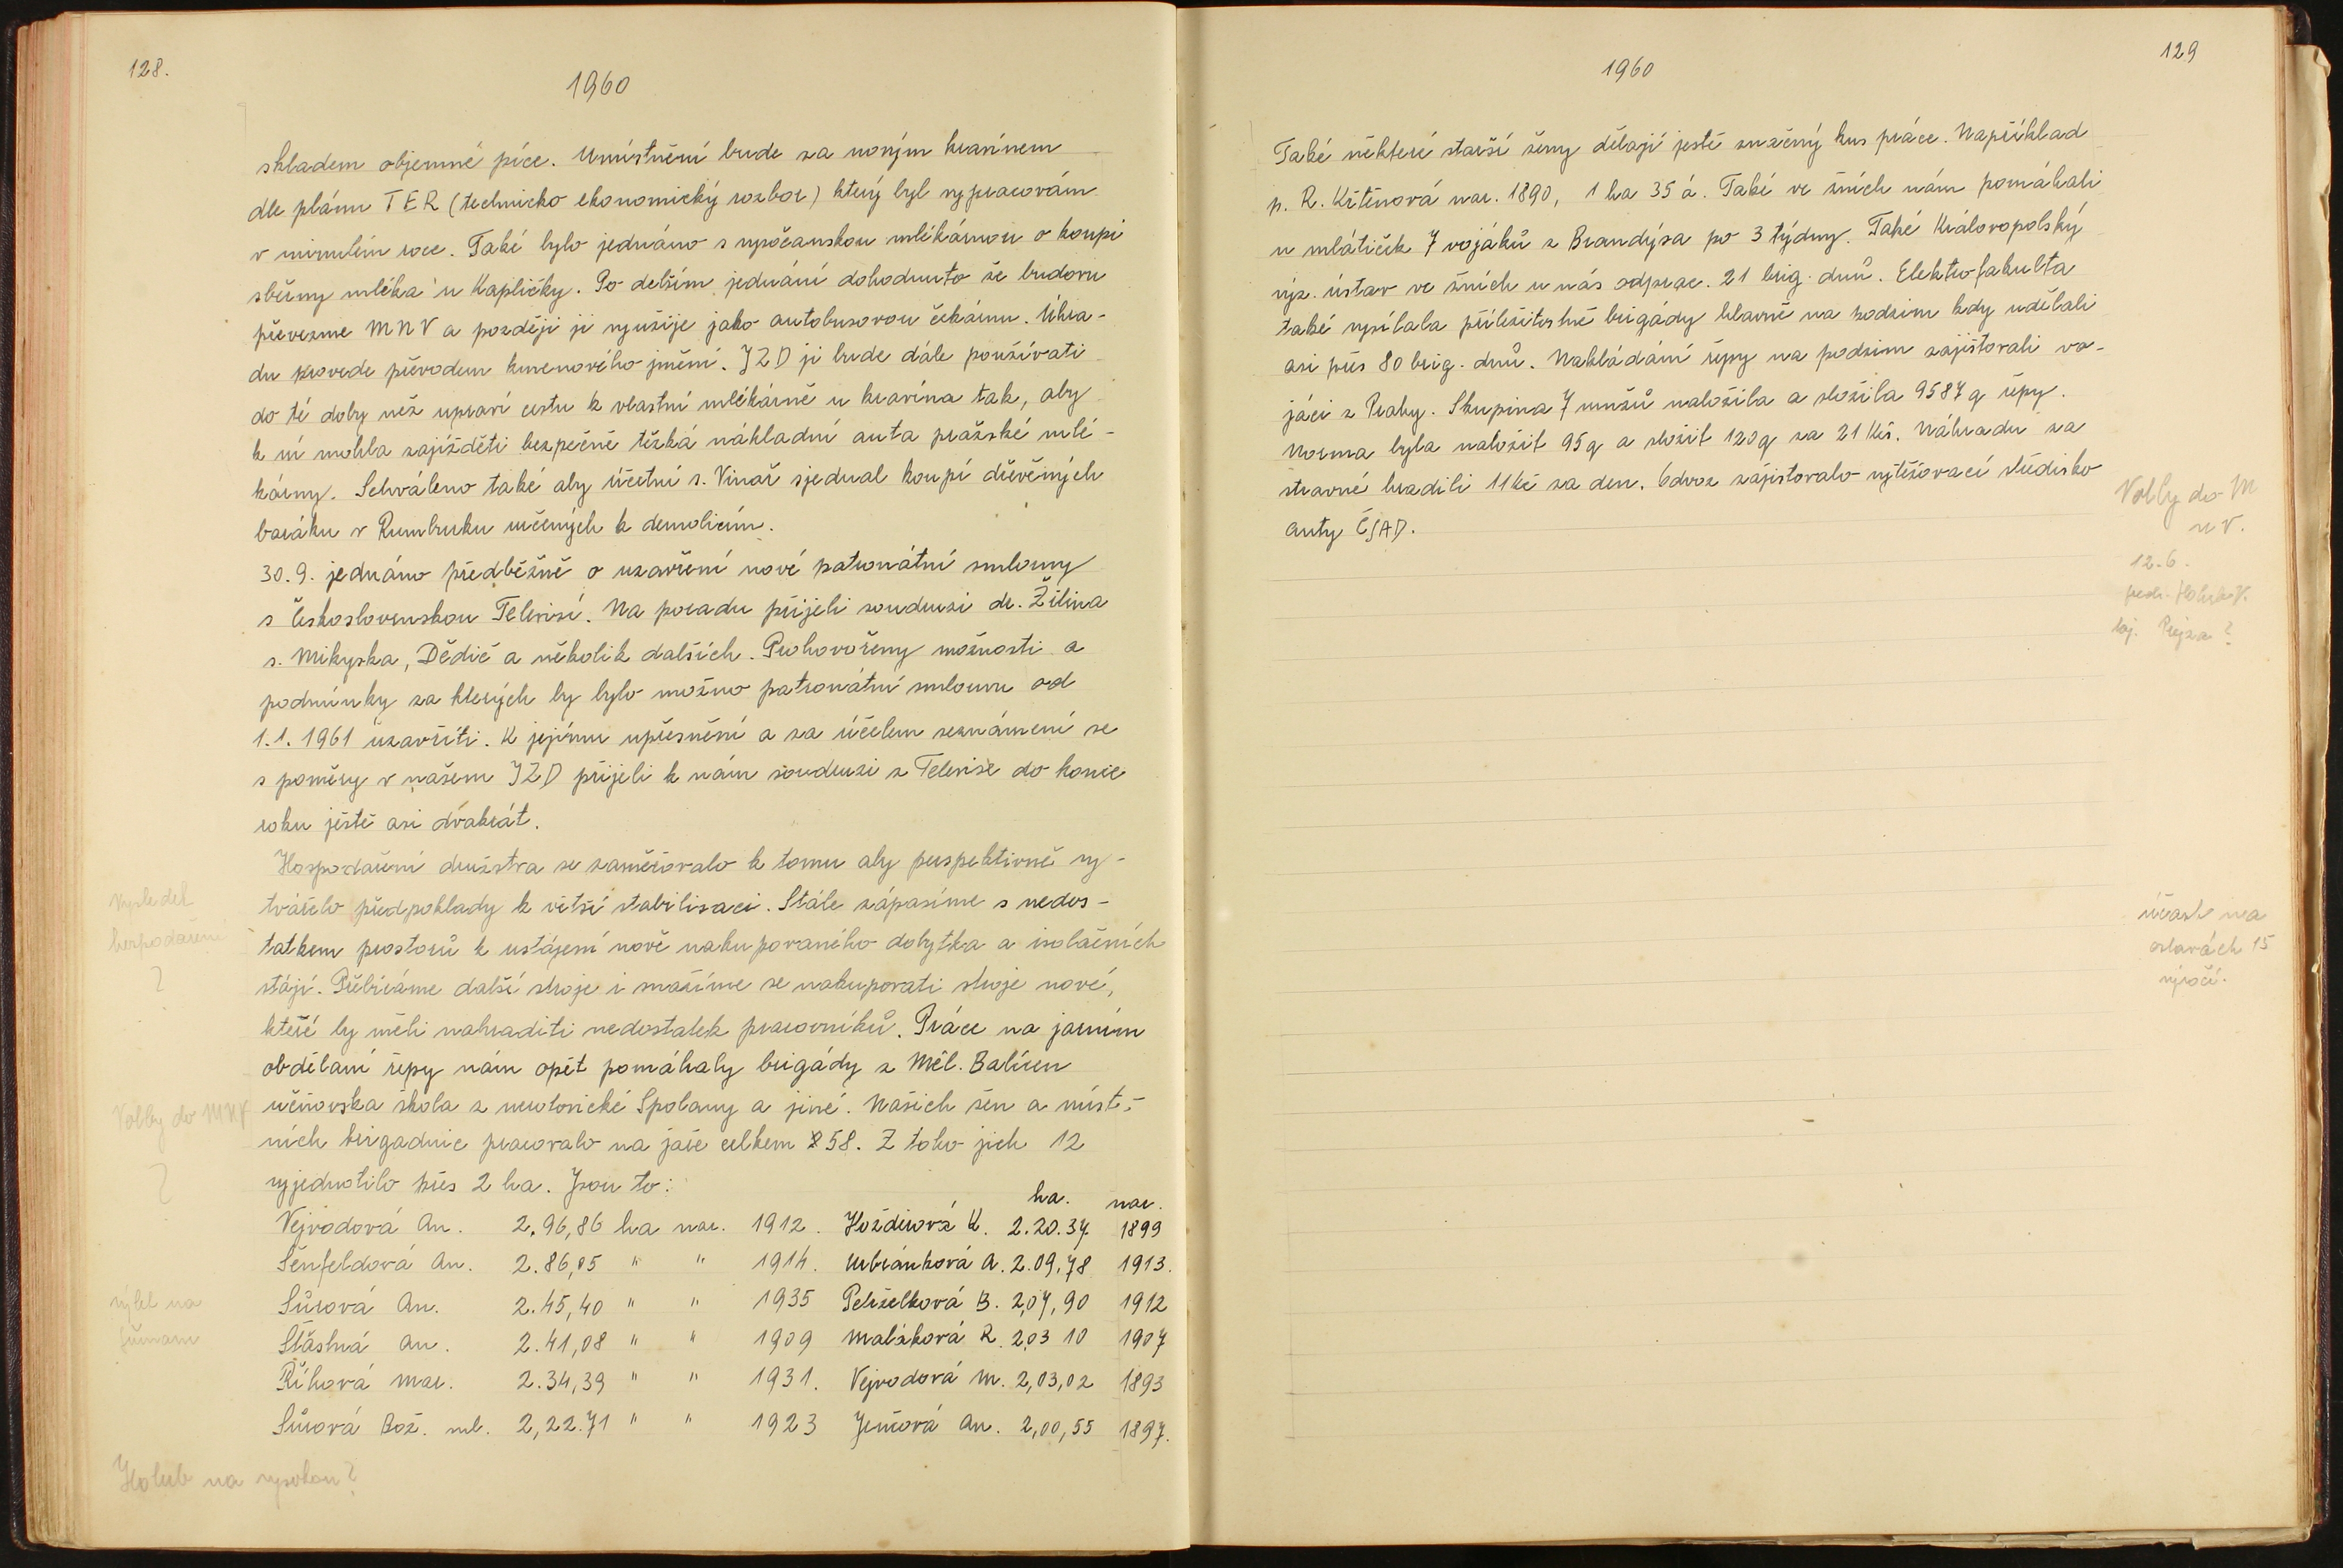 128.
1960
skladem objemné píce. Umístnění bude za novým kravínem
dle plánu TER (technicko ekonomický rozbor) který byl vypracován
v minulém roce. Také bylo jednáno s vysočanskou mlékárnou o koupi
sběrny mléka u Kapličky. Po delším jednání dohodnuto že budovu
převezme MNV a později ji využije jako autobusovou čekárnu. Úhra-
du provede převodem kmenového jmění. JZD ji bude dále používati
do té doby než upraví cestu k vlastní mlékárně u kravína tak, aby
k ní mohla zajížděti bezpečně těžká nákladní auta pražské mlé-
kárny. Schváleno také aby účetní s. Vinař sjednal koupi dřevěných
baráku v Rumburku určených k demolicím.
30.9. jednáno předběžně o uzavření nové patronátní smlouvy
s Československou Televisí. Na poradu přijeli soudruzi dr. Žilina
s. Mikyska, Dědič a několik dalších. Prohovořeny možnosti a
podmínky za kterých by bylo možno patronátní smlouvu od
1.1. 1961 uzavříti. K jejímu upřesnění a za účelem seznámení se
s poměry v našem JZD přijeli k nám soudruzi z Televise do konce
roku ještě asi dvakrát.
Hospodaření družstva se zaměřovalo k tomu aby perspektivně vy-
tvářelo předpoklady k větší stabilisaci. Stále zápasíme s nedos-
tatkem prostorů k ustájení nově nakupovaného dobytka a isolačních
stájí. Přebíráme další stroje i snažíme se nakupovati stroje nové,
které by měli nahraditi nedostatek pracovníků. Práce na jarním
obdělaní řepy nám opět pomáhaly brigády z Měl. Balíren
učňovska škola z neratovické Spolany a jiné. Našich žen a míst-
ních brigadnic pracovalo na jaře celkem 58. Z toho jich 12
vyjednotilo přes 2 ha. Jsou to:
ha. nar.
Vejvodová An. 2.96,86 ha nar. 1912. Hoždirová K. 2.20.37. 1899
Šenfeldová An. 2.86,05 " " 1914. Urbánková A. 2.09,78 1913.
Sůrová An. 2.45,40 " " 1935 Pehzelková B. 2,07,90 1912
Šťastná An. 2.41,08 " " 1909 Malíková R. 2,03 10 1907
Říhová Mar. 2.34,39 " " 1931. Vejvodová M. 2,03,02 1893
Sůrová Bož. ml. 2,22.71 " " 1923 Jenšová An. 2,00,55 1897.
Vysledek
hospodaření
?
Volby do MNV
?
výlet na
Šumavu
Holub na vysokou?
129
1960
Také některé starší ženy dělají jestě značný kus práce. Například
p. R. Křtěnová nar. 1890, 1 ha 35 á. Také ve žních nám pomáhali
u mlátiček 7 vojáků z Brandýsa po 3 týdny. Také Královopolský
výz. ústav ve žních u nás odprac. 21 brig. dnů. Elektrofakulta
také vysílala příležitostné brigády hlavně na podzim kdy udělali
asi přes 80 brig. dnů. Nakládání řepy na podzim zajišťovali vo-
jáci z Prahy. Skupina 7 mužů naložila a složila 9587 q řepy.
Norma byla naložit 95q a složit 120q za 21 Kčs. Náhradu za
stravné hradili 11 Kč za den. Odvoz zajistovalo vytěžovací středisko
auty ČSAD.
Volby do M
n V.
12.6.
před. Holub V.
taj. Prejza?
účast na
oslavách 15
výročí.